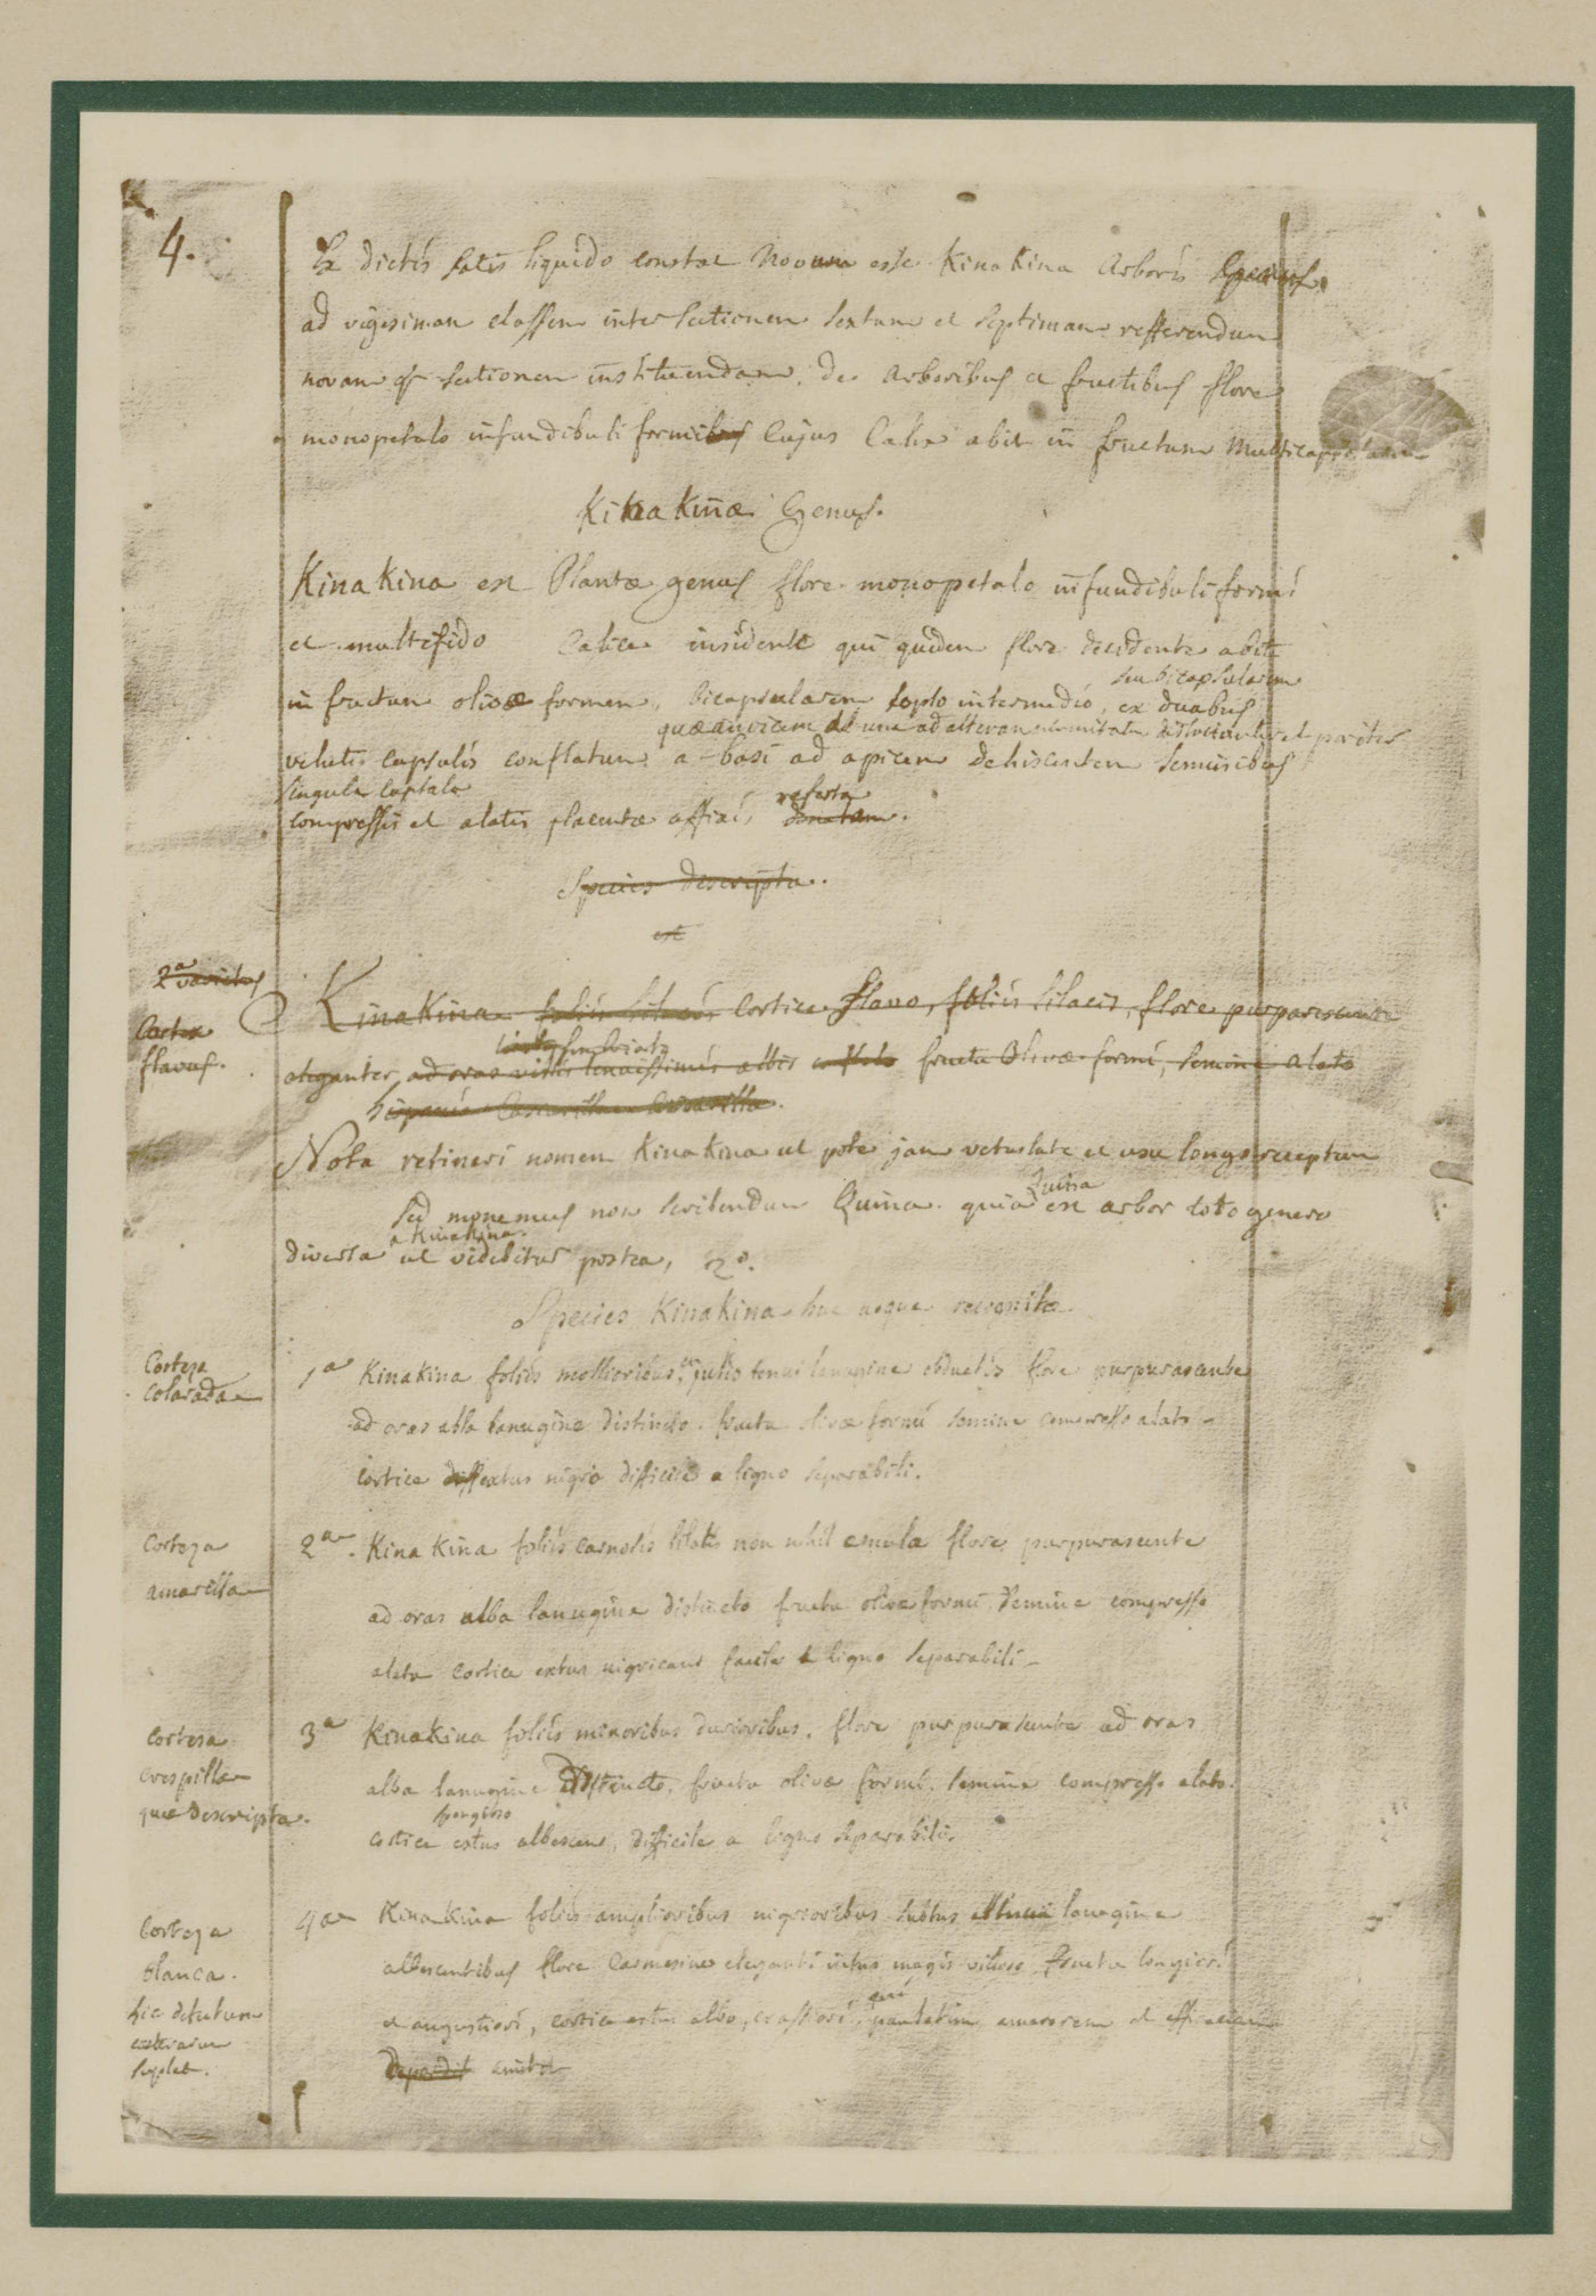 4.
Ex dictis satis liquido constat novum esse Kina Kina Arboris
ad vigesimam classem inter sectionem sextam et septimam refferendum
novam sectionem instituendam. De Arboribus et fructibus flore
monopetalo infundibuli formibus Cujus Calix abit in fructum Multicapsularem
Kina Kinæ Genus.
Kina Kina est Plantæ genus flore monopetalo infundibuli formi
et multifido Calice insidente qui quidem flore decidente abit
seu bicapsularem
in fructum olivæ formem, bicapsularem septo intermedio, ex duabus
quæ ad alteram et pariter
velutis capsulis conflatum a basi ad apicem dehiscentem seminibus
singula capsula referta
compressis et alatis placentæ affixis
Species Descripta.
est
2a varietas
Cortex
flavus.
KinaKina foliis lilacis Cortice flavo, foliis lilacis, flore purpurascente
eleganter, ad oras villis tenuissimis albis fructu Olivæ formi, semine alato
hispanis Cascarilla amarilla.
Nota retineri nomen Kina Kina ut pote jam vetustate et usu longo receptum
Quina
sed monemus non scribendum Quina. quia est arbor toto genere
a KinaKina.
diversa ut videbitur postea, 2o.
Species KinaKina huc usque recognitæ
Corteza
Colorada
1a Kinakina foliis mollioribus, tenui lanugine obductis flore purpurascente
ad oras alba lanugine distincto. fructu olivæ formi semine compresso alato
cortice extus nigro difficile a ligno separabili.
Corteza
amarilla
2a. Kina Kina foliis lilacis non nihil emula flore purpurascente
ad oras alba lanugine distincto fructu olivæ formi semine compresso
alato cortice extus nigricans facile a ligno separabili
Corteza
crespilla
quæ Descripta.
3a KinaKina foliis minoribus durioribus, flore purpurascente ad oras
alba lanugine distincto. fructu olivæ formi. semine compresso alato.
spongioso
cortice extus albescens, difficile a ligno separabili.
Corteza
blanca.
4a KinaKina foliis amplioribus nigrioribus subtus lanugine
albescentibus flore Carmesino eleganti intus magis villoso fructu longiori
qui
et angustiori, cortice extus albo, crassiori, amarorem et efficaciam
deperdit amittit